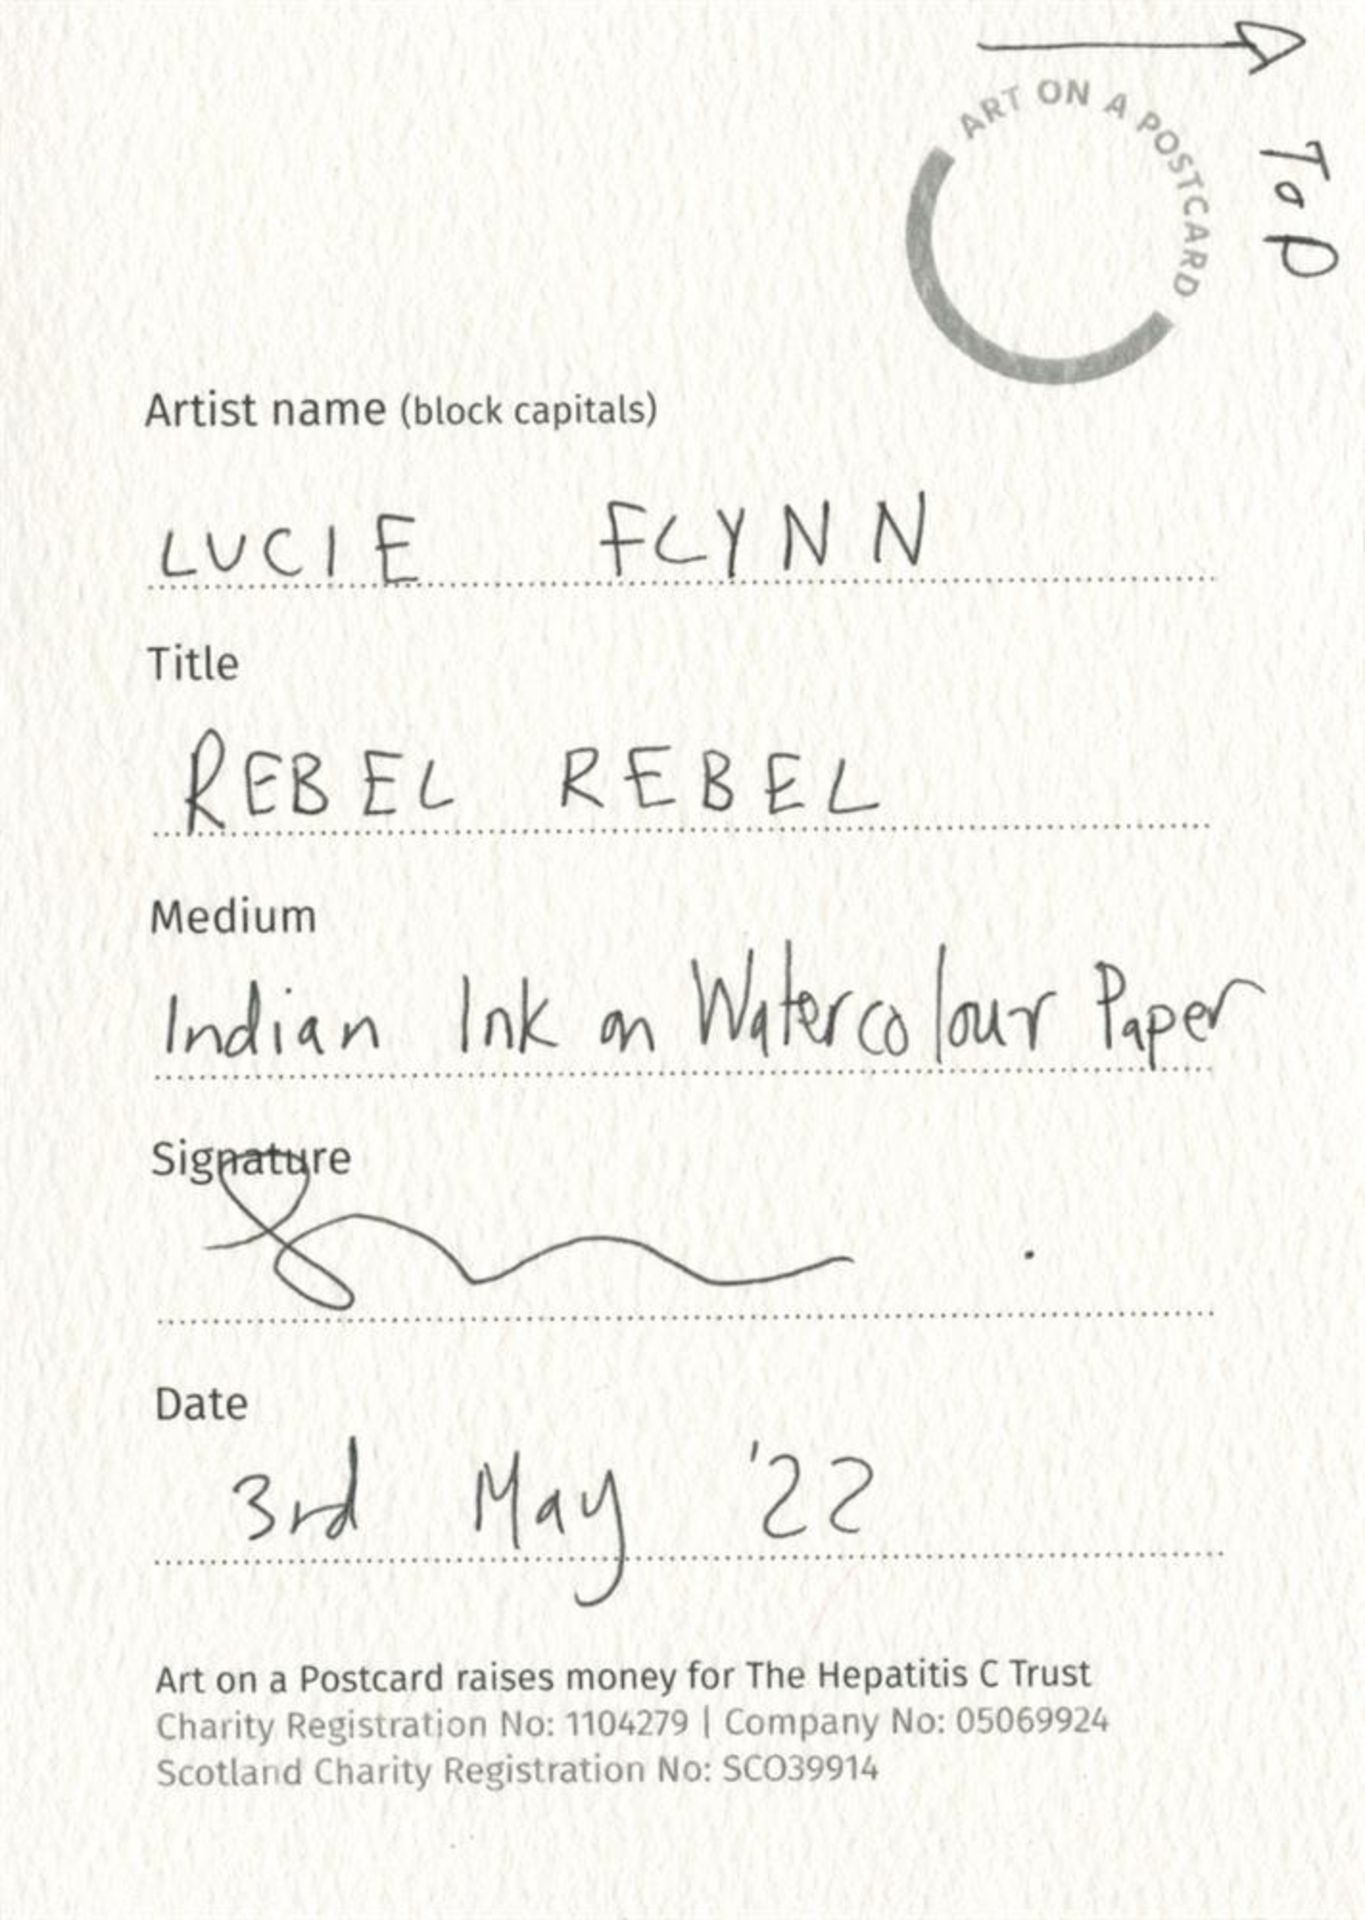 ART ON A POSTCARD
TOP
Artist name (block capitals)
LUCIE FLYNN
Title
REBEL REBEL
Medium
Indian Ink on Watercolour Paper
Signature
Date
3rd May '22
Art on a Postcard raises money for The Hepatitis C Trust
Charity Registration No: 1104279 | Company No: 05069924
Scotland Charity Registration No: SCO39914